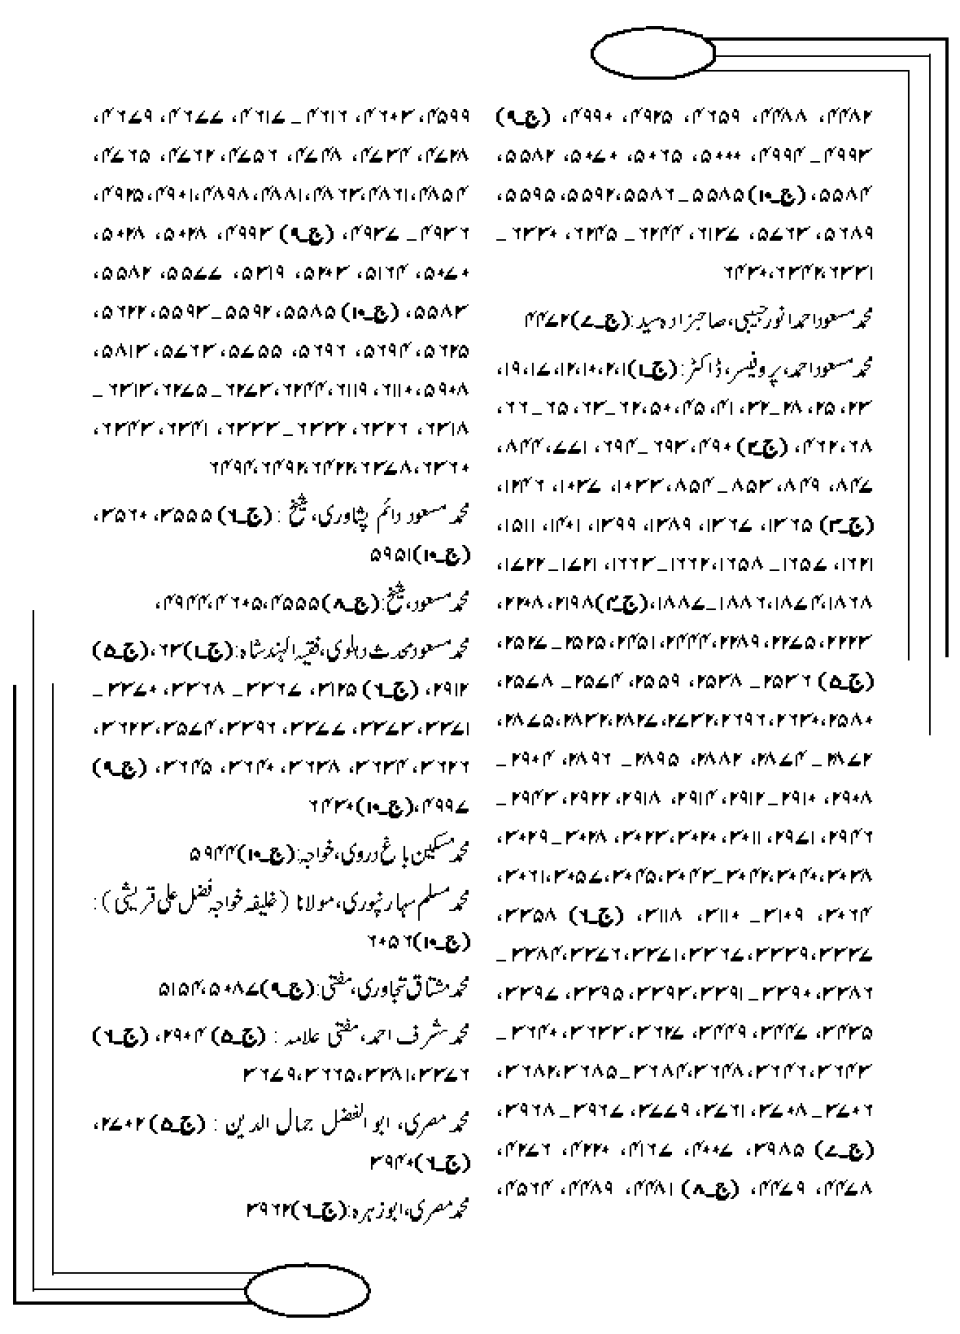 ۴۴۸۲، ۴۴۸۸، ۴۶۵۹، ۴۹۲۵، ۴۹۹۰، (ج۔۹)
۴۹۹۳۔۴۹۹۴، ۵۰۰۰، ۵۰۶۵، ۵۰۷۰، ۵۵۸۲،
۵۵۸۴، (ج۔۱۰)۵۵۸۵۔۵۵۸۶،۵۵۹۲،۵۵۹۵،
۵۶۸۹، ۵۷۶۳، ۶۱۳۷، ۶۲۴۴۔ ۶۲۴۵، ۶۳۳۰۔
۶۳۳۱،۶۳۴۲،۶۴۳۰
محمد مسعود احمد انور حبیبی، صاحبزادہ سید:(ج۔۷)۴۴۷۲
محمد مسعود احمد، پروفیسر، ڈاکٹر:(ج۔۱)۱،۲،۱۰،۱۲،۱۷،۱۹،
۲۳، ۲۵، ۲۸۔۳۲، ۴۱، ۴۵، ۵۰،۶۲۔۶۳، ۶۵۔۶۶،
۶۸،۴۶۲، (ج۔۲) ۴۹۰،۶۹۳۔ ۶۹۴، ۷۷۱، ۸۴۴،
۸۴۷، ۸۴۹، ۸۵۳۔۸۵۴، ۱۰۳۳، ۱۰۳۷، ۱۲۴۶،
(ج۔۳) ۱۳۶۵، ۱۳۶۷، ۱۳۸۹، ۱۳۹۹، ۱۴۰۱، ۱۵۱۱،
۱۶۲۱، ۱۶۵۷۔ ۱۶۵۸،۱۶۶۲۔۱۶۶۳، ۱۷۲۱۔۱۷۲۲،
۱۸۶۸،۱۸۷۴،۱۸۸۶۔۱۸۸۷،(ج۔۴)۲۱۹۸،۲۲۰۸،
۲۲۲۳،۲۲۷۵،۲۲۸۹،۲۴۴۴،۲۴۵۱،۲۵۲۵۔ ۲۵۲۷،
(ج۔۵) ۲۵۳۶۔ ۲۵۳۸، ۲۵۵۹، ۲۵۷۴۔ ۲۵۷۸،
۲۵۸۰،۲۶۳۰،۲۶۹۶،۲۷۳۲،۲۸۲۷،۲۸۳۲،۲۸۷۵،
۲۸۷۲۔ ۲۸۷۴، ۲۸۸۲، ۲۸۹۵۔ ۲۸۹۶، ۲۹۰۴۔
۲۹۰۸، ۲۹۱۰۔۲۹۱۲، ۲۹۱۴، ۲۹۱۸، ۲۹۲۲، ۲۹۴۳۔
۲۹۴۶، ۲۹۷۱، ۳۰۱۱، ۳۰۲۰،۳۰۲۳، ۳۰۲۸۔۳۰۲۹،
۳۰۳۸،۳۰۴۰،۳۰۴۲۔۳۰۴۳،۳۰۴۵،۳۰۵۷،۳۰۶۱،
۳۰۶۴، ۳۱۰۹۔ ۳۱۱۰، ۳۱۱۸، (ج۔۶) ۳۳۵۸،
۳۳۳۷،۳۳۳۹،۳۳۶۷،۳۳۷۱،۳۳۷۶،۳۳۸۴۔
۳۳۸۶،۳۳۹۰۔۳۳۹۱،۳۳۹۳،۳۳۹۵، ۳۳۹۷،
۳۴۳۵، ۳۴۴۷، ۳۴۴۹، ۳۶۲۷، ۳۶۳۳، ۳۶۴۰۔
۳۶۴۳،۳۶۴۶،۳۶۴۸،۳۶۸۴۔۳۶۸۵،۳۶۸۲،
۳۷۰۶۔۳۷۰۸، ۳۷۶۱، ۳۷۷۹، ۳۹۶۷۔ ۳۹۶۸،
(ج۔۷) ۳۹۸۵، ۴۰۰۷، ۴۱۶۷، ۴۲۲۰، ۴۲۷۶،
۴۴۷۸، ۴۴۷۹، (ج۔۸) ۴۴۸۱، ۴۴۸۹، ۴۵۶۴،
۴۵۹۹، ۴۶۰۳، ۴۶۱۶۔ ۴۶۱۷، ۴۶۷۷، ۴۶۷۹،
۴۷۲۸، ۴۷۳۴، ۴۷۴۸، ۴۷۵۶، ۴۷۶۲، ۴۷۶۵،
۴۸۵۴،۴۸۶۱،۴۸۶۳،۴۸۸۱،۴۸۹۸،۴۹۰۱،۴۹۲۵،
۴۹۳۶۔ ۴۹۳۷، (ج۔۹) ۴۹۹۳، ۵۰۲۸، ۵۰۲۸،
۵۰۷۰، ۵۱۶۴، ۵۲۰۳، ۵۳۱۹، ۵۵۷۷، ۵۵۸۲،
۵۵۸۳، (ج۔۱۰) ۵۵۸۵،۵۵۹۲۔۵۵۹۳،۵۶۲۲،
۵۶۲۵، ۵۶۹۴، ۵۶۹۶، ۵۷۵۵، ۵۷۶۳، ۵۸۱۳،
۵۹۰۸، ۶۱۱۰، ۶۱۱۹، ۶۲۴۴، ۶۲۷۳۔۶۲۷۵، ۶۳۱۳۔
۶۳۱۸، ۶۳۲۶، ۶۳۳۲۔۶۳۳۳، ۶۳۴۱، ۶۳۴۳،
۶۳۶۰،۶۳۷۸،۶۴۲۲،۶۴۹۲،۶۴۹۴
محمد مسعود دائم پشاوری، شیخ : (ج۔۶) ۳۵۵۵، ۳۵۶۰،
(ج۔۱۰)۵۹۵۱
محمد مسعود، شیخ:(ج۔۸)۴۵۵۵،۴۶۰۵،۴۹۴۴،
محمد مسعود محدث دہلوی، فقیہ الہند شاہ:(ج۔۱)۶۳،(ج۔۵)
۲۹۱۲، (ج۔۶) ۳۱۲۵، ۳۳۶۷۔ ۳۳۶۸، ۳۳۷۰۔
۳۳۷۱،۳۳۷۳،۳۳۷۷،۳۳۹۶،۳۵۷۴،۳۶۲۳،
۳۶۲۶، ۳۶۳۴، ۳۶۳۸، ۳۶۴۰، ۳۶۴۵، (ج۔۹)
۴۹۹۷،(ج۔۱۰)۶۴۳۰
محمد مسکین باغ دروی، خواجہ:(ج۔۱۰)۵۹۴۴
محمد مسلم سہارنپوری، مولانا (خلیفہ خواجہ فضل علی قریشی):
(ج۔۱۰)۶۰۵۶
محمد مشتاق تجاوری، مفتی:(ج۔۹)۵۰۸۷،۵۱۵۴
محمد مشرف احمد، مفتی علامہ : (ج۔۵) ۲۹۰۴، (ج۔۶)
۳۳۷۶،۳۳۸۱،۳۶۶۵،۳۶۷۹
محمد مصری، ابو الفضل جمال الدین : (ج۔۵) ۲۷۰۲،
(ج۔۶)۳۹۴۰
محمد مصری، ابوزہرہ:(ج۔۶)۳۹۶۲